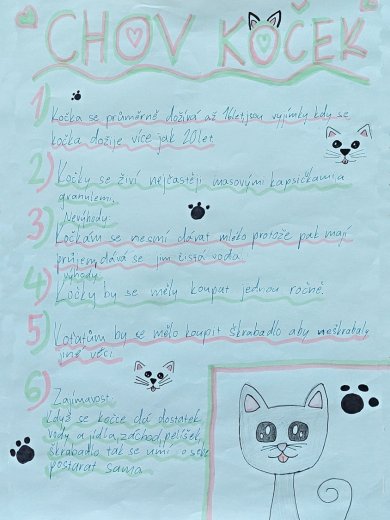 CHOV KOČEK
1)
Kočka se průměrně dožívá až 16let,jsou vyjímky kdy se
kočka dožije více jak 20let.
2)
Kočky se živí nejčastěji masovými kapsičkami a
granulemi.
3)
Nevýhody:
Kočkám se nesmí dávat mléko protože pak mají
průjem,dává se jim čistá voda.
4)
Výhody:
Kočky by se měly koupat jednou ročně.
5)
Koťatům by se mělo koupit škrabadlo aby neškrabaly
jiné věci.
6)
Zajímavost:
Když se kočce dá dostatek
vody a jídla,záchod,pelíšek,
škrabadlo tak se umí o sebe
postarat sama.